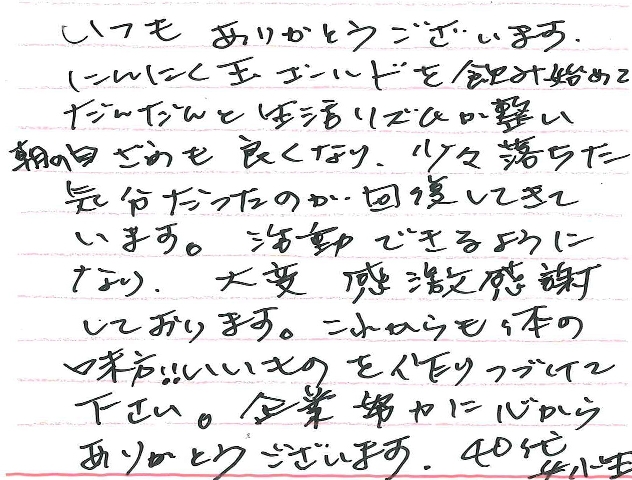 いつも ありがとうございます.
にんにく玉ゴールドを飲み始めて
だんだんと生活リズムが整い
朝の目ざめも良くなり. 少々落ちた
気分だったのが回復してきて
います。 活動できるように
なり. 大変 感激感謝
しております。これからも体の
味方!!いいものを作りつづけて
下さい。企業努力に心から
ありがとうございます. 40代